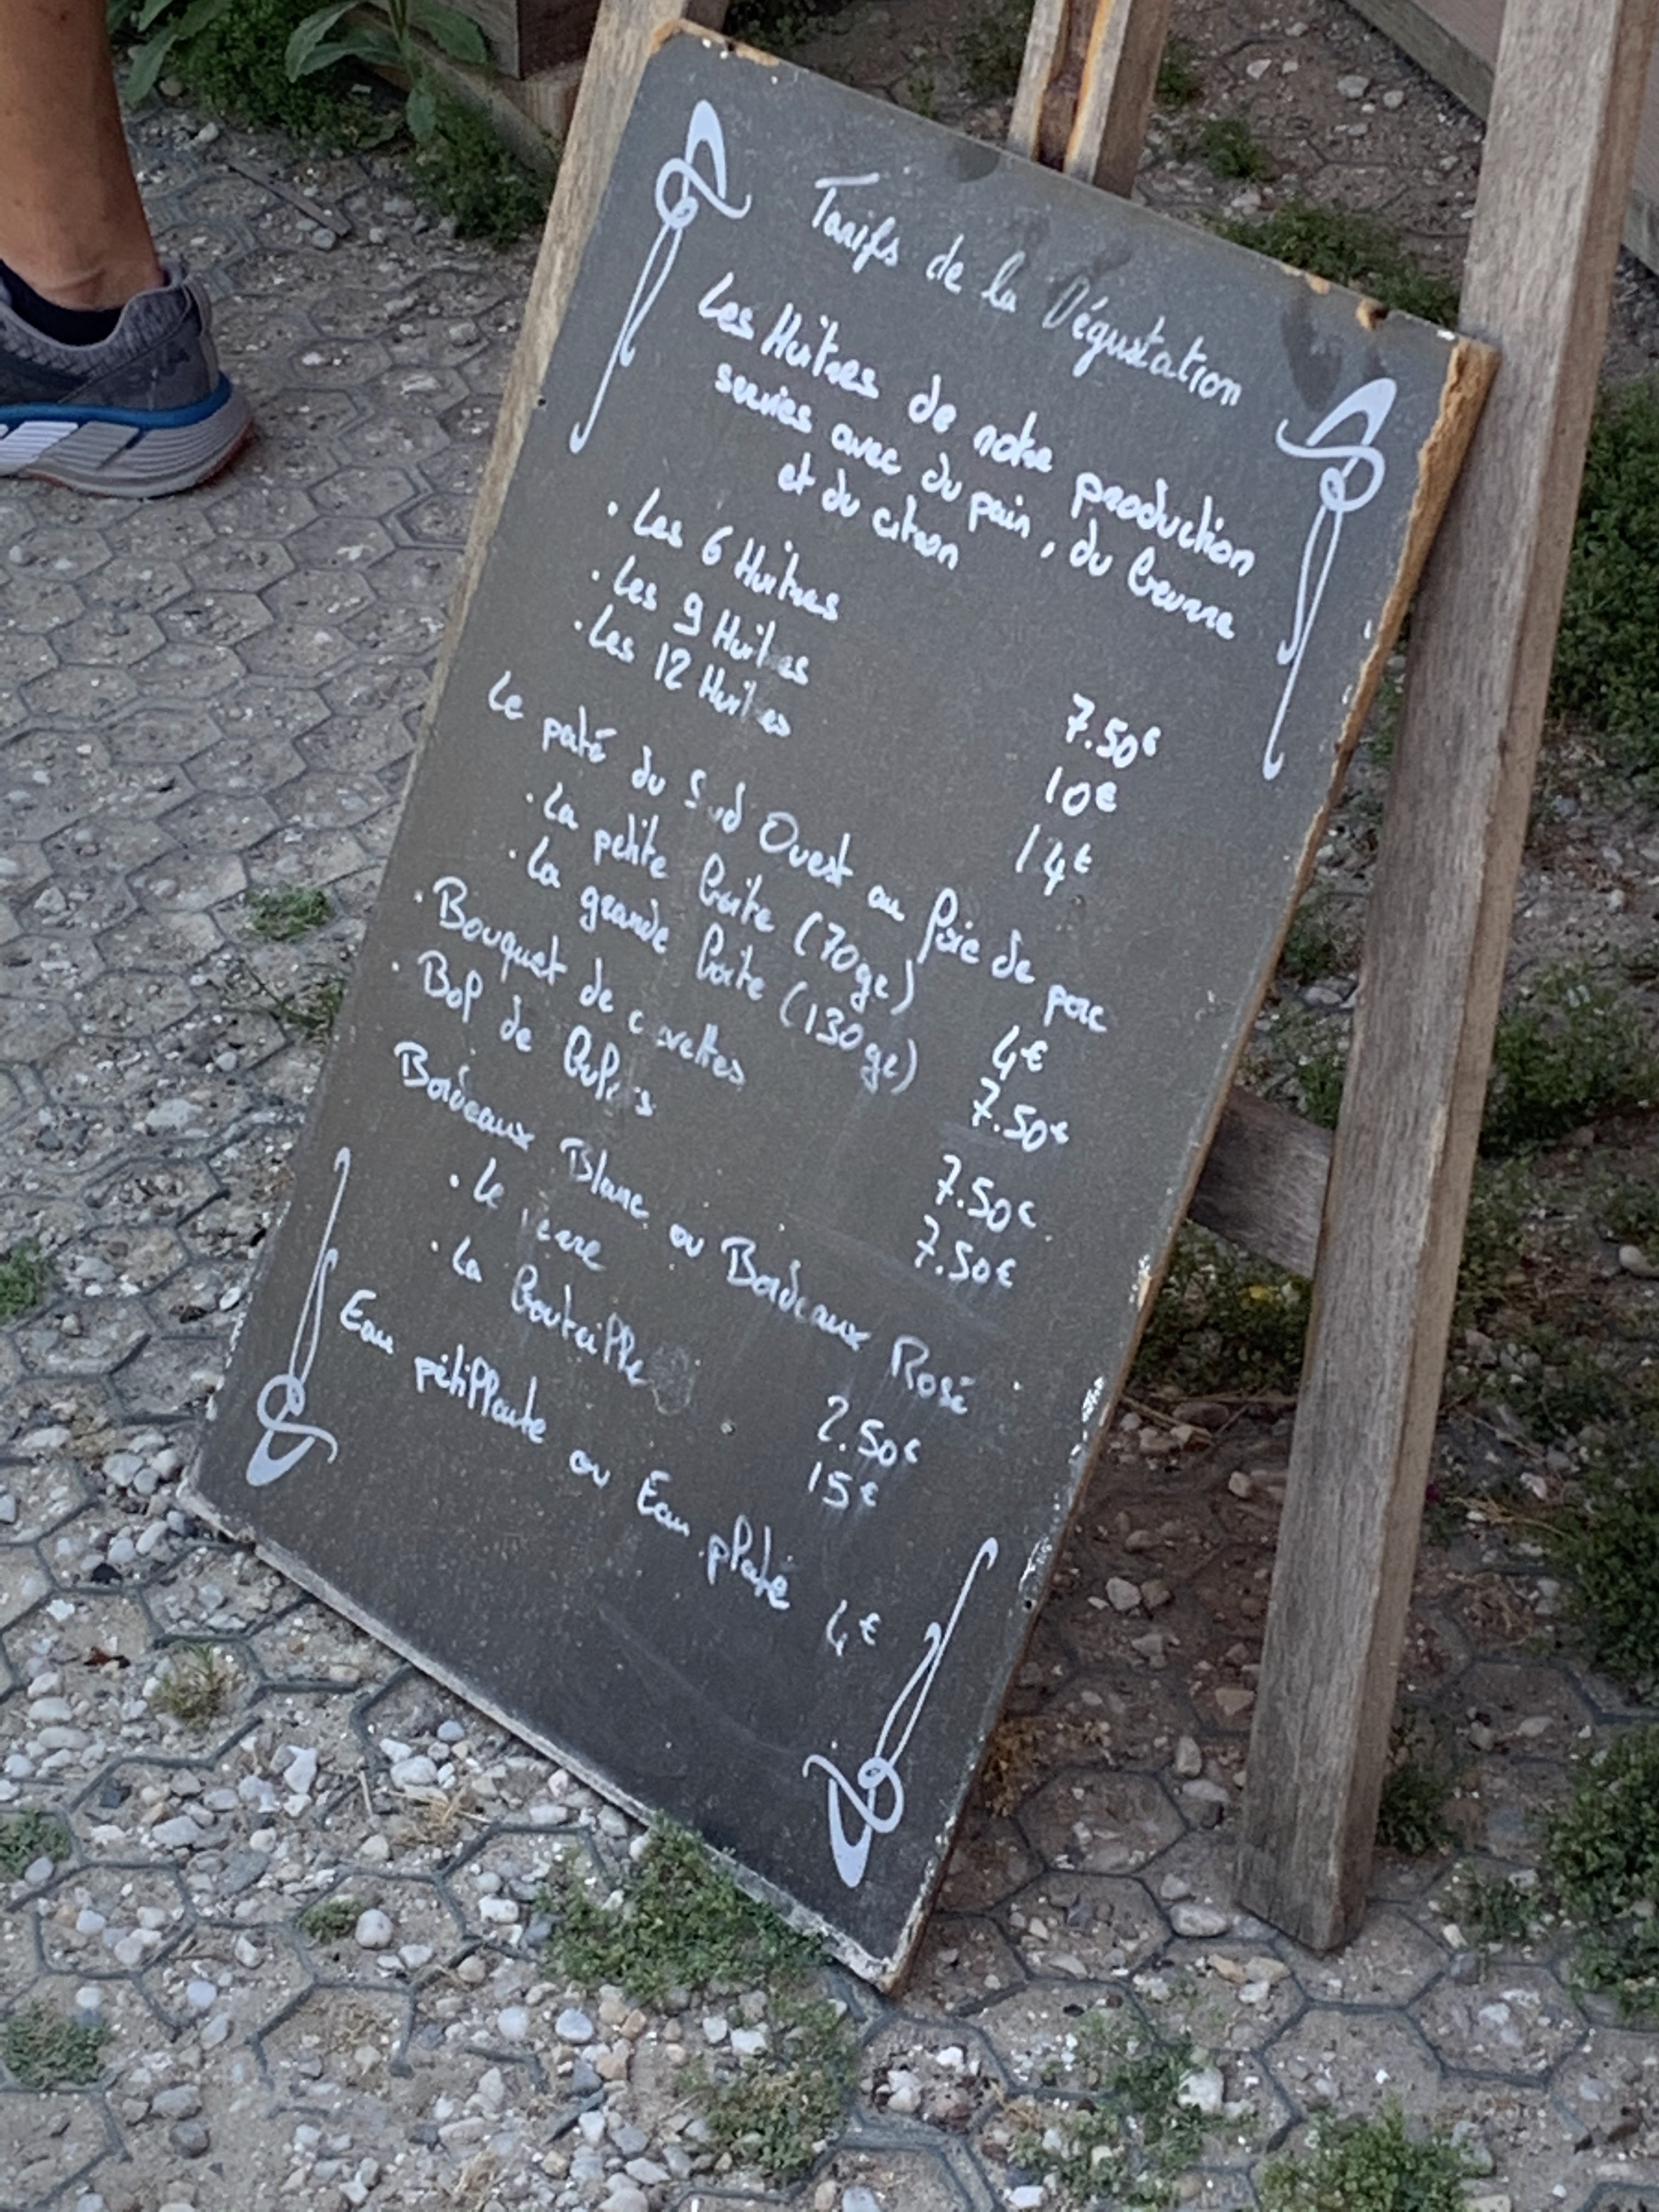 Tarifs de la Dégustation
Les Huîtres de notre production
servies avec du pain, du beurre
et du citron
. Les 6 Huîtres 7.50€
. Les 9 Huîtres 10€
. Les 12 Huîtres 14€
Le paté du Sud Ouest au foie de porc
. La petite boîte (70gr) 4€
. La grande boîte (130gr) 7.50€
. Bouquet de crevettes 7.50€
. Bol de Bulots 7.50€
Bordeaux Blanc ou Bordeaux Rosé
. Le verre 2.50€
. La bouteille 15€
Eau pétillante ou Eau plate 4€